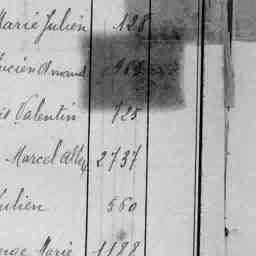 Marie Julien 128
Lucien Amand
Valentin 725
Marcel 2737
Julien 560
Marie 1188